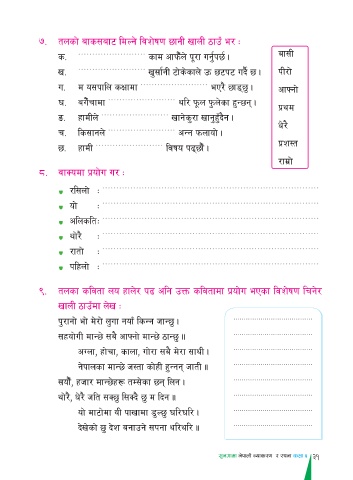 ७. तलको बाकसबाट मिल्ने विशेषण छानी खाली ठाउँ भर :
क. ........................ काम आफैँले पूरा गर्नुपर्छ ।
ख. ........................ खुर्सानी टोकेकाले ऊ छटपट गर्दै छ ।
ग. म यसपालि कक्षामा ........................ भएरै छाड्छु ।
घ. बगैँचामा ........................ थरि फूल फुलेका हुन्छन् ।
ङ. हामीले ........................ खानेकुरा खानुहुँदैन ।
च. किसानले ........................ अन्न फलायो ।
छ. हामी ........................ विषय पढ्छौँ ।
बासी
पीरो
आफ्नो
प्रथम
धेरै
प्रशस्त
राम्रो
८. वाक्यमा प्रयोग गर :
रसिलो : ........................
यो : ........................
अलिकति: ........................
थोरै : ........................
रातो : ........................
पहिलो : ........................
९. तलका कविता लय हालेर पढ अनि उक्त कवितामा प्रयोग भएका विशेषण चिनेर
खाली ठाउँमा लेख :
पुरानो भो मेरो लुगा नयाँ किन्न जान्छु ।
सहयोगी मान्छे सबै आफ्नो मान्छे ठान्छु ॥
अग्ला, होचा, काला, गोरा सबै मेरा साथी ।
नेपालका मान्छे जस्ता कोही हुन्नन् जाती ॥
सयौँ, हजार मान्छेहरू तम्सेका छन् लिन ।
थोरै, धेरै जति सक्छु सिक्दै छु म दिन ॥
यो माटोमा यी पाखामा डुल्छु घरिघरि ।
देखेको छु देश बनाउने सपना थरिथरि ॥
नेपाली व्याकरण र रचना कक्षा ४ २१